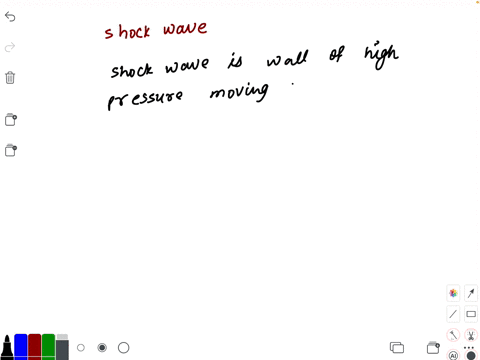 shock wave
shock wave is wall of high
pressure moving
AI